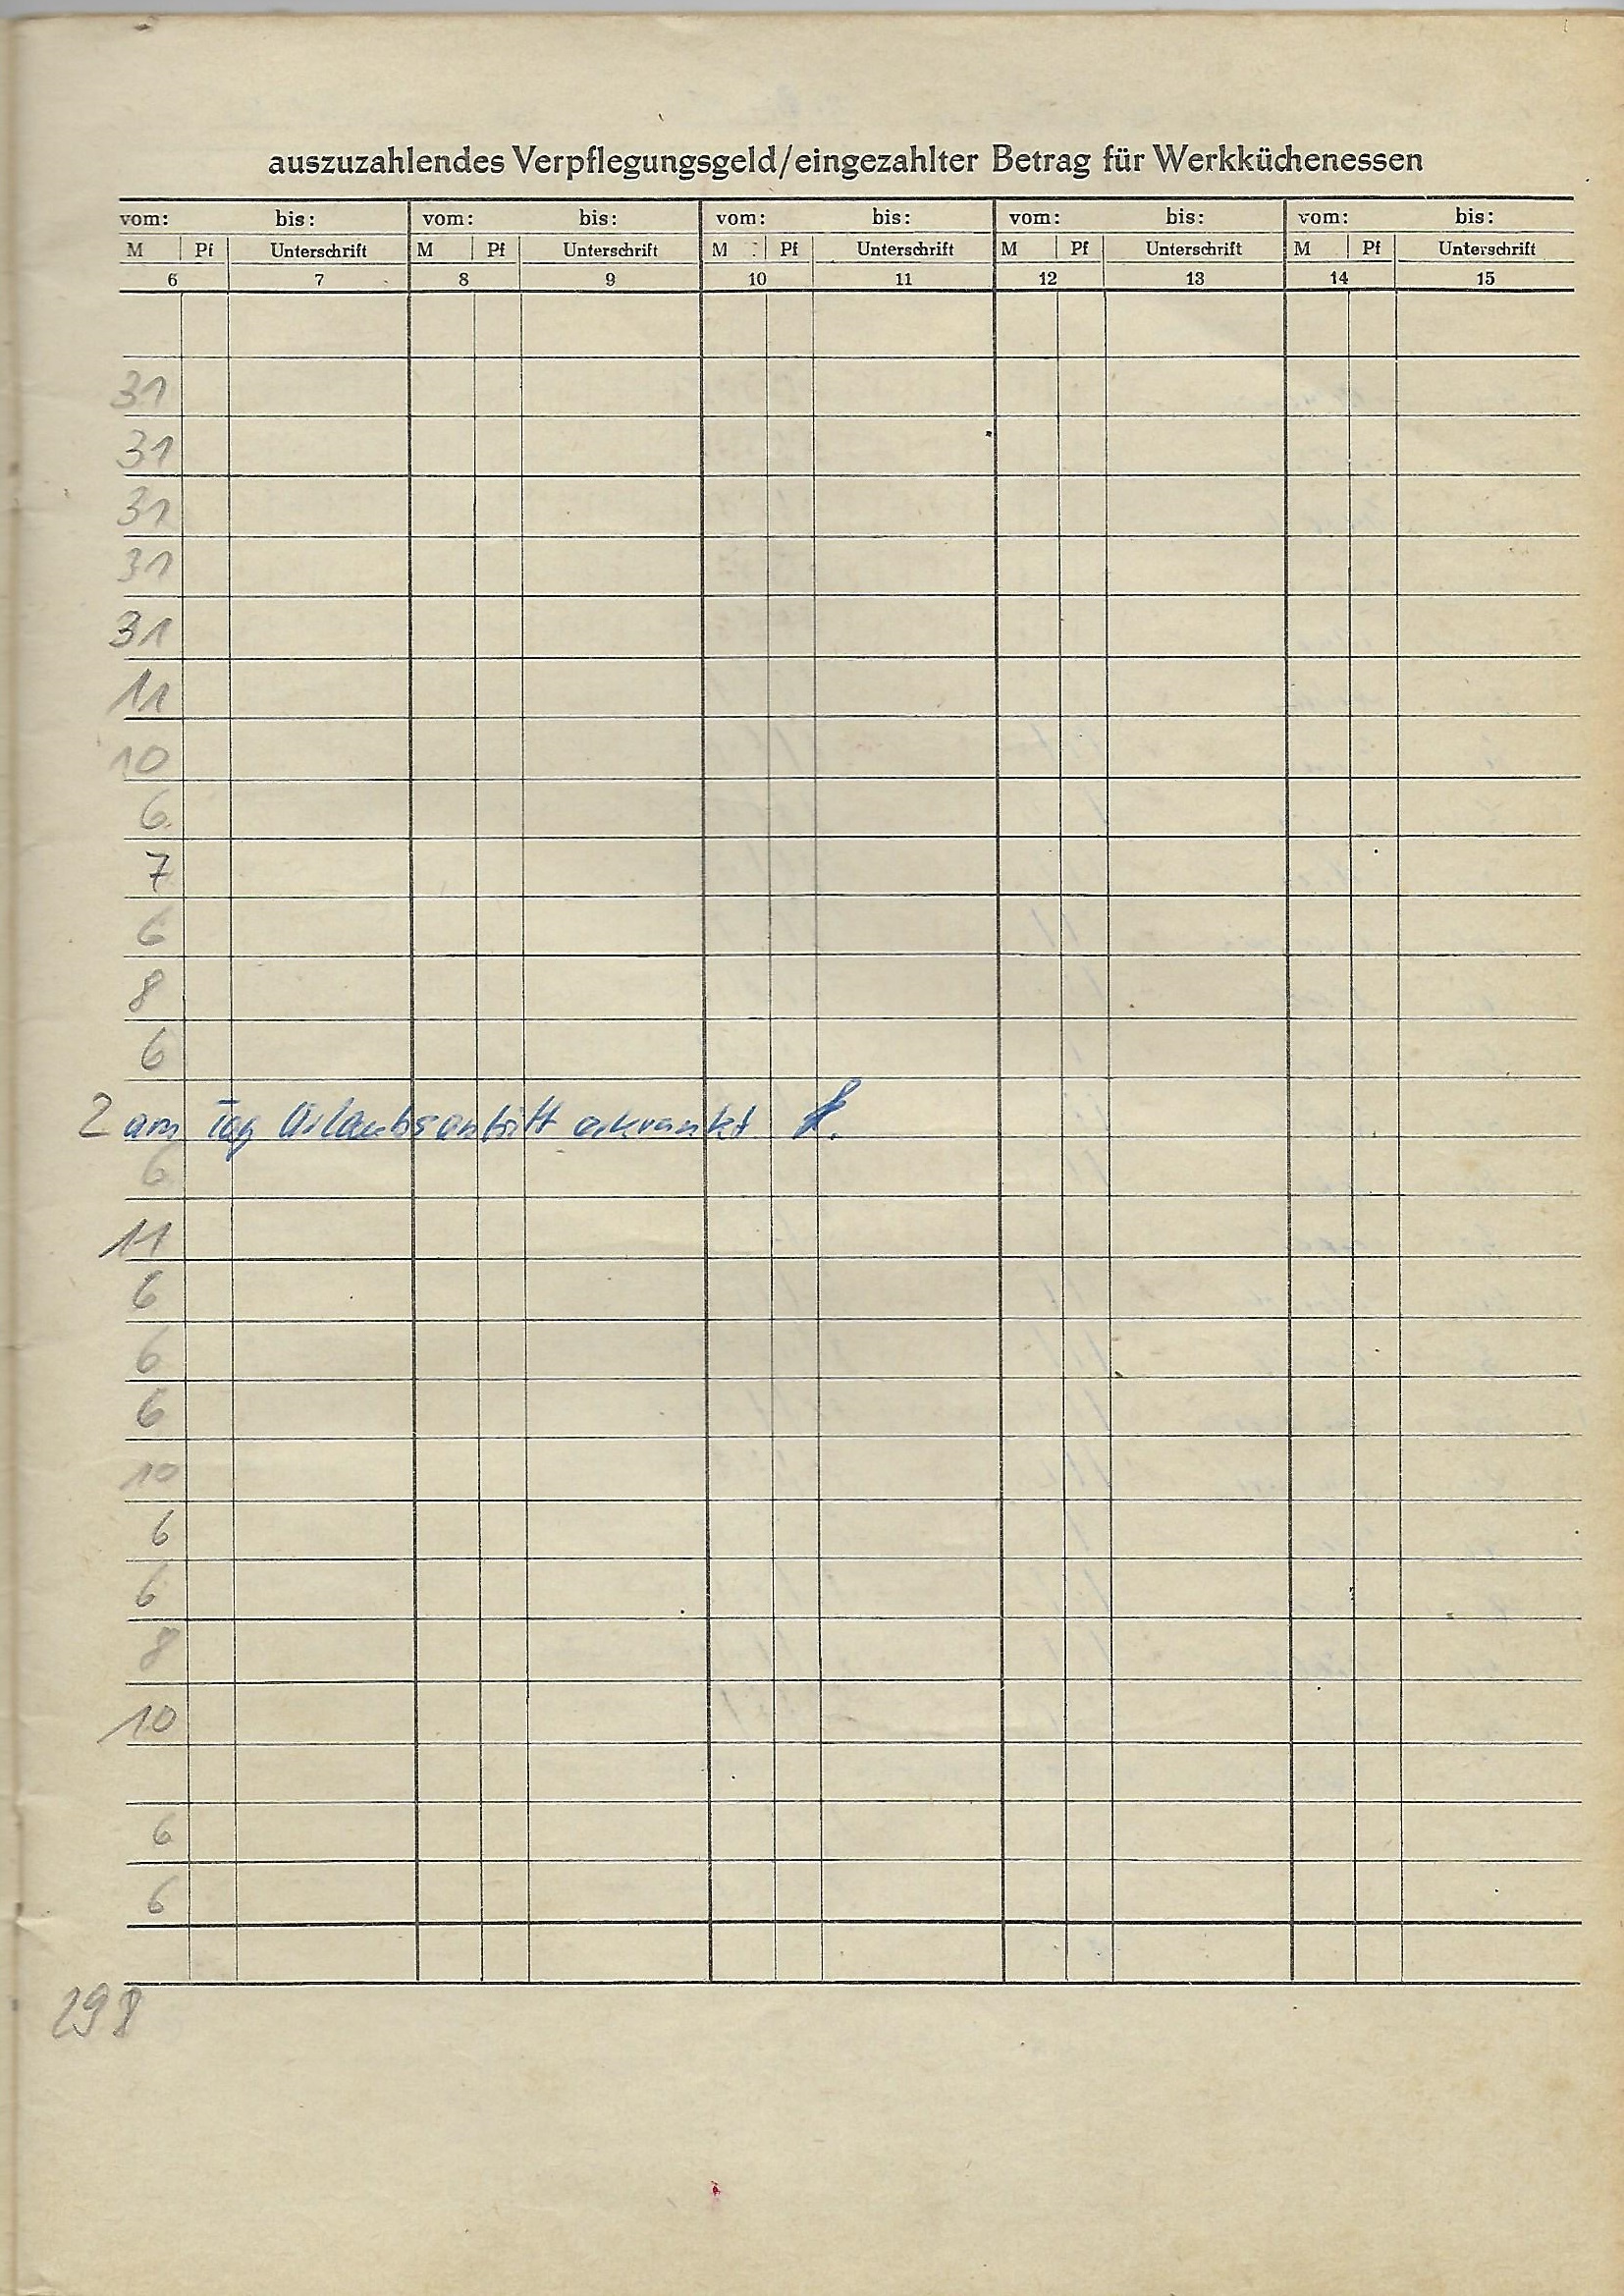 auszuzahlendes Verpflegungsgeld/eingezahlter Betrag für Werkküchenessen
vom: bis: vom: bis: vom: bis: vom: bis: vom: bis:
M Pf Unterschrift M Pf Unterschrift M Pf Unterschrift M Pf Unterschrift M Pf Unterschrift
6 7 8 9 10 11 12 13 14 15
31
31
31
31
31
11
10
6
7
6
8
6
2 am Tag Urlaubsantritt erkrankt
6
11
6
6
6
10
6
6
8
10
6
6
298